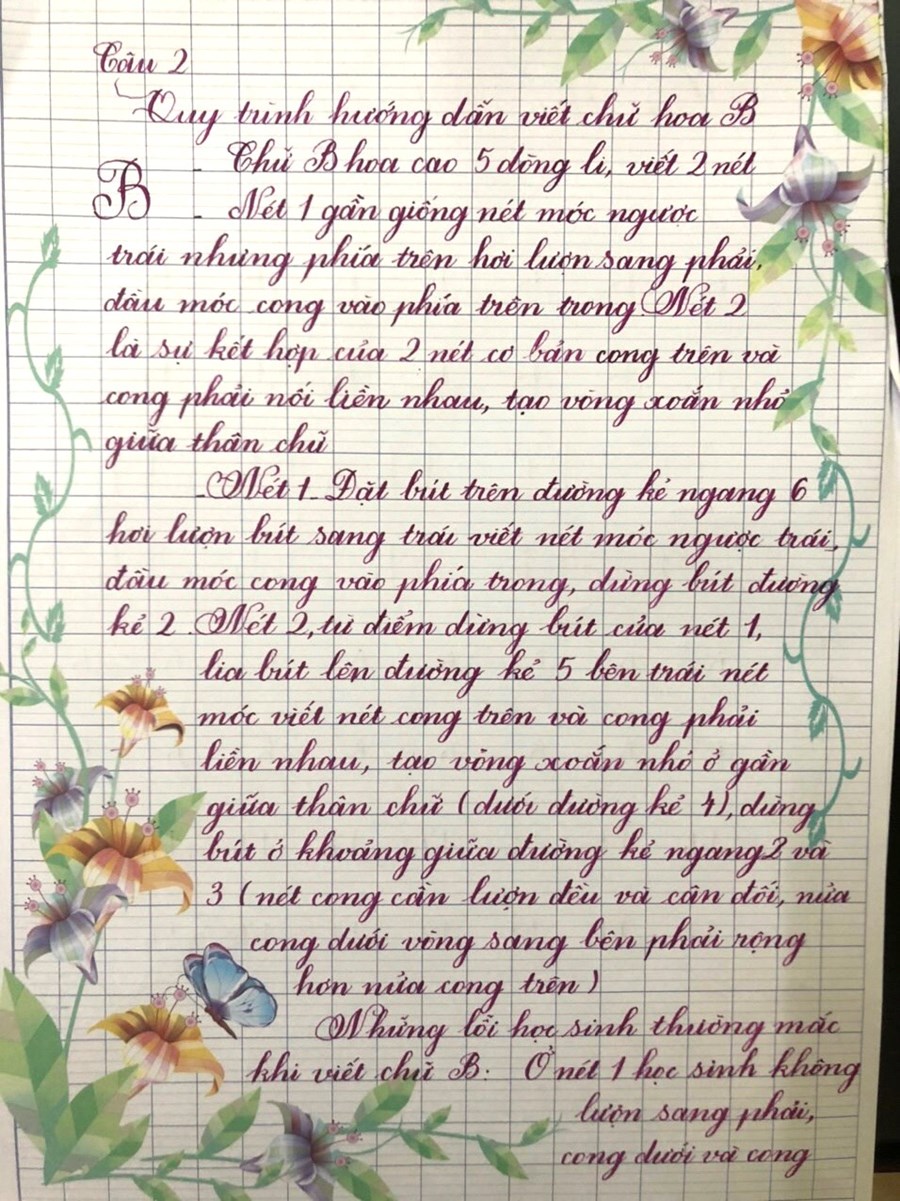 Câu 2
Quy trình hướng dẫn viết chữ hoa B
- Chữ B hoa cao 5 dòng li, viết 2 nét
B - Nét 1 gần giống nét móc ngược
trái nhưng phía trên hơi lượn sang phải,
đầu móc cong vào phía trên trong Nét 2
là sự kết hợp của 2 nét cơ bản cong trên và
cong phải nối liền nhau, tạo vòng xoắn nhỏ
giữa thân chữ
- Nét 1 - Đặt bút trên đường kẻ ngang 6
hơi lượn bút sang trái viết nét móc ngược trái,
đầu móc cong vào phía trong, dừng bút đường
kẻ 2. Nét 2, từ điểm dừng bút của nét 1,
lia bút lên đường kẻ 5 bên trái nét
móc viết nét cong trên và cong phải
liền nhau, tạo vòng xoắn nhỏ ở gần
giữa thân chữ (dưới đường kẻ 4), dừng
bút ở khoảng giữa đường kẻ ngang 2 và
3 (nét cong cần lượn đều và cân đối, nửa
cong dưới vòng sang bên phải rộng
hơn nửa cong trên)
Những lỗi học sinh thường mắc
khi viết chữ B: Ở nét 1 học sinh không
lượn sang phải,
cong dưới và cong